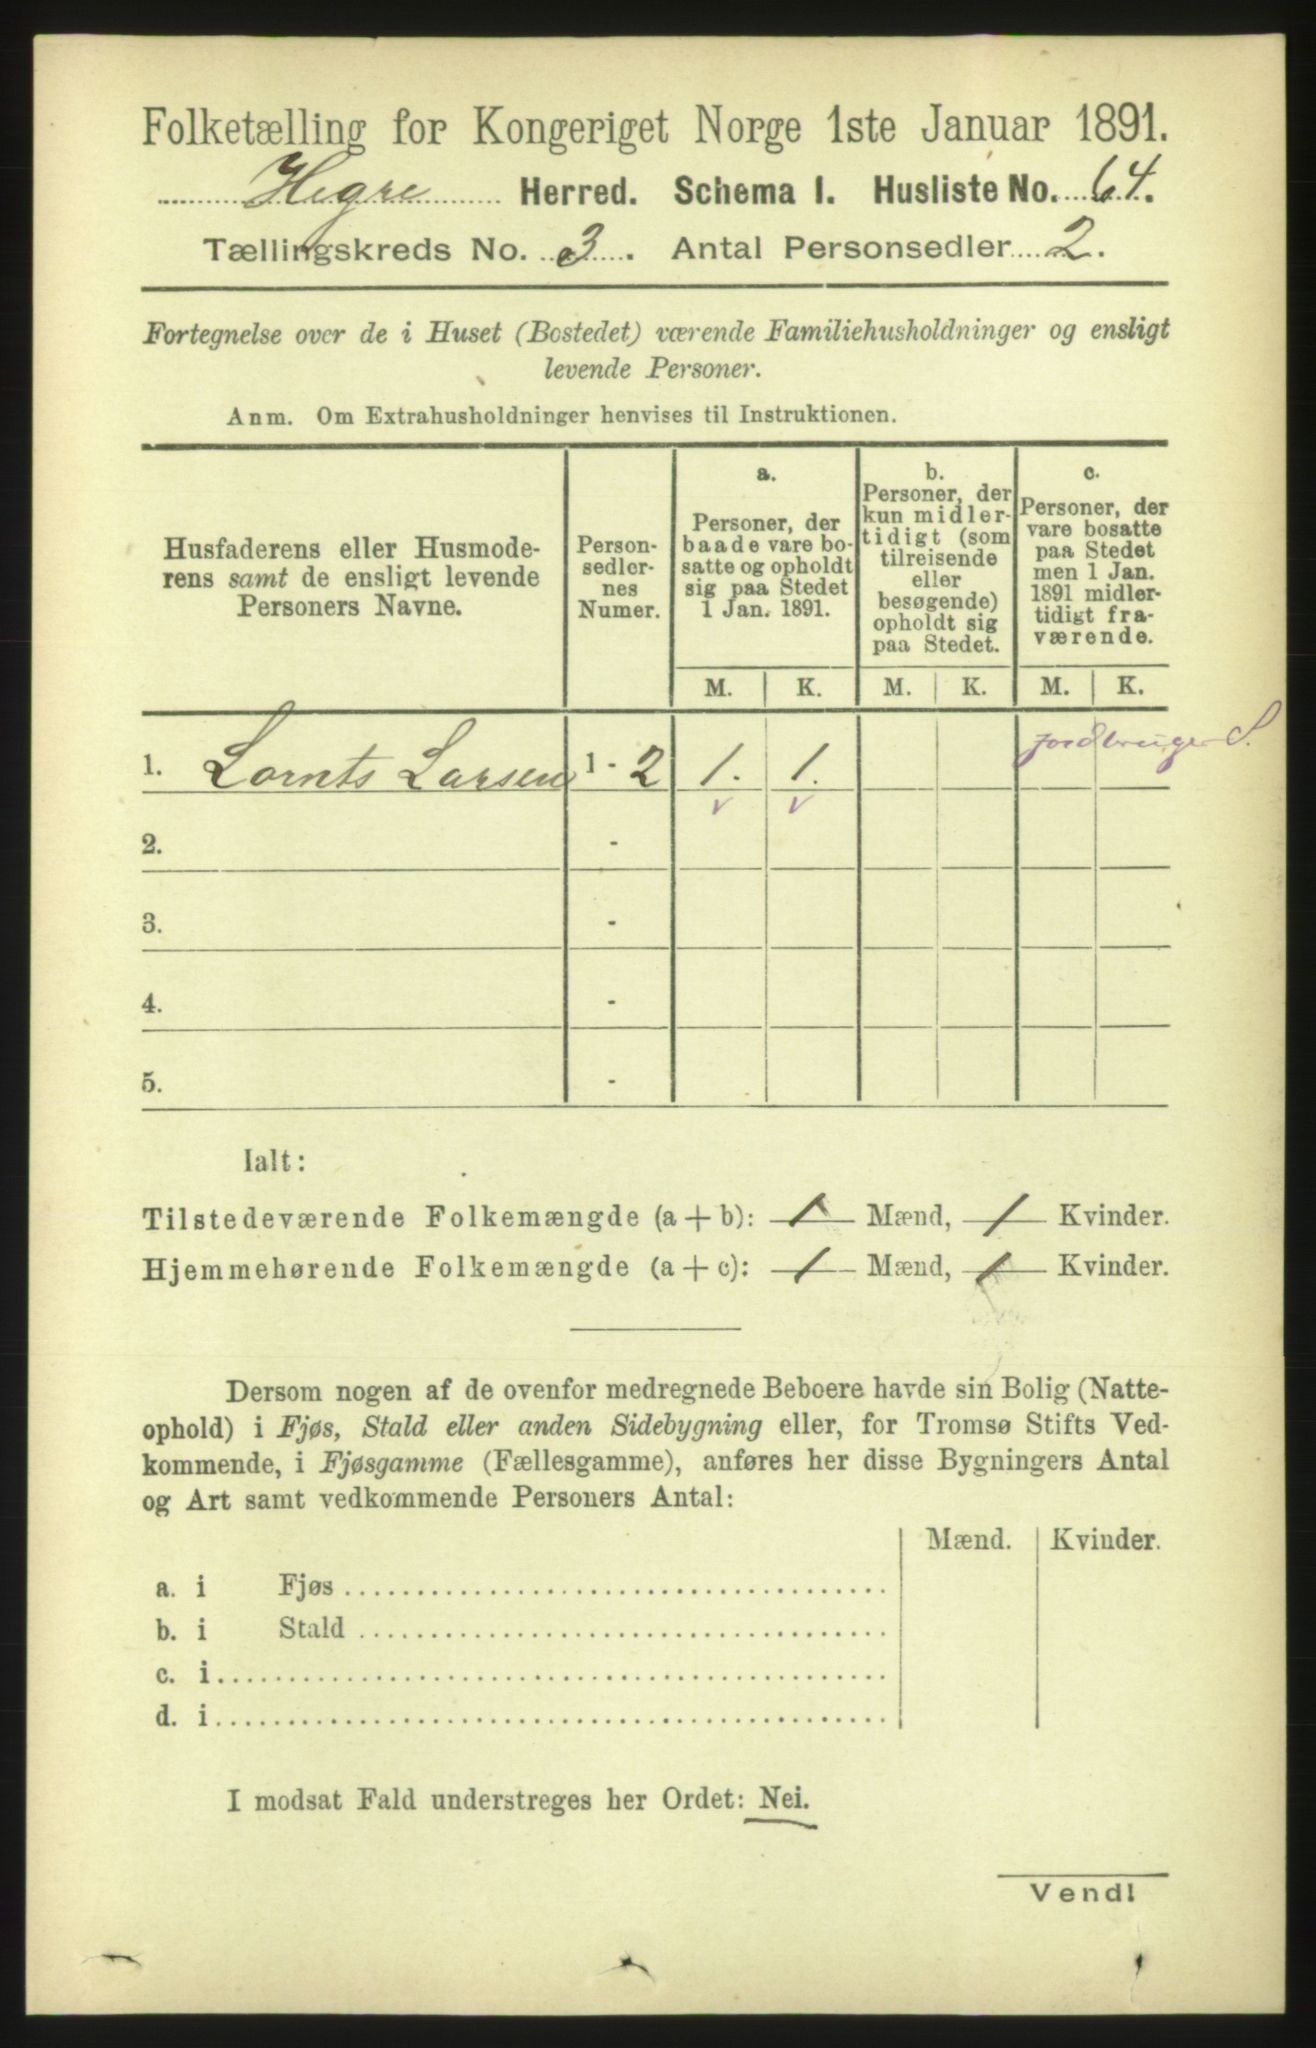 Folketælling for Kongeriget Norge 1ste Januar 1891.
Hegre Herred. Schema I. Husliste No. 64.
Tællingskreds No. 3. Antal Personsedler 2.
Fortegnelse over de i Huset (Bostedet) værende Familiehusholdninger og ensligt
levende Personer.
Anm. Om Extrahusholdninger henvises til Instruktionen.
Husfaderens eller Husmode-
rens samt de ensligt levende
Personers Navne.
Person-
sedler-
nes
Numer.
a.
Personer, der
baade vare bo-
satte og opholdt
sig paa Stedet
1 Jan. 1891.
b.
Personer, der
kun midler-
tidigt (som
tilreisende
eller
besøgende)
opholdt sig
paa Stedet.
c.
Personer, der
vare bosatte
paa Stedet
men 1 Jan.
1891 midler-
tidigt fra-
værende.
M. K. M. K. M. K.
Jordbruger S.
1. Lornts Larsen 1 - 2 1. 1.
v v
2. -
3. -
4. -
5. -
Ialt:
Tilstedeværende Folkemængde (a + b): 1 Mænd, 1 Kvinder.
Hjemmehørende Folkemængde (a + c): 1 Mænd, 1 Kvinder.
Dersom nogen af de ovenfor medregnede Beboere havde sin Bolig (Natte-
ophold) i Fjøs, Stald eller anden Sidebygning eller, for Tromsø Stifts Ved-
kommende, i Fjøsgamme (Fællesgamme), anføres her disse Bygningers Antal
og Art samt vedkommende Personers Antal:
Mænd. Kvinder.
a. i Fjøs
b. i Stald
c. i
d. i
I modsat Fald understreges her Ordet: Nei.
Vend!